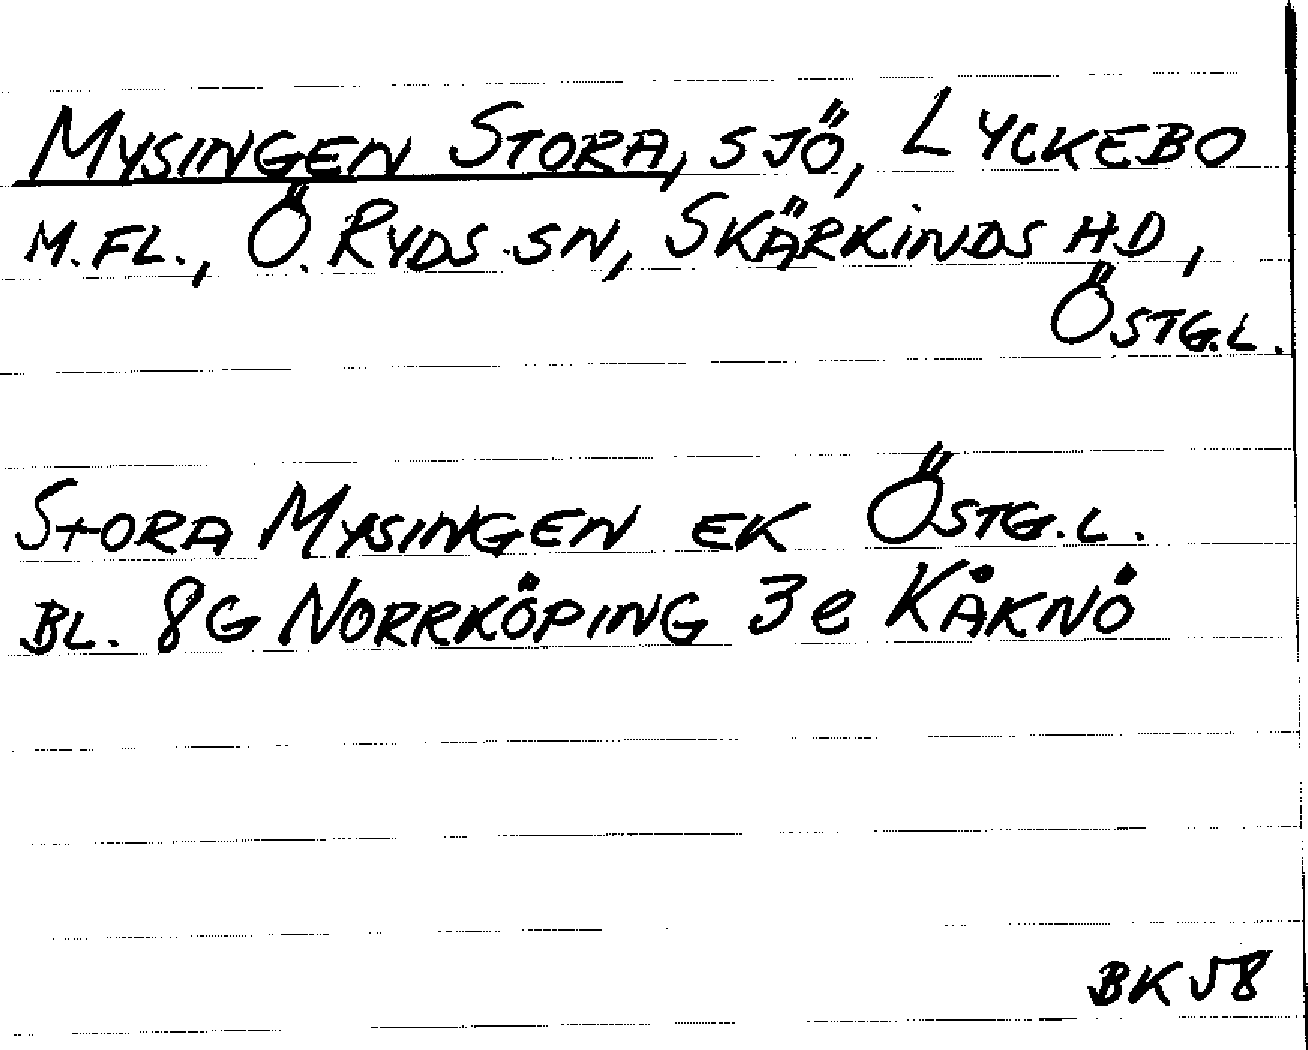 MYSINGEN STORA, SJÖ, LYCKEBO
M.FL., Ö. RYDS SN, SKÄRKINDS HD,
ÖSTG.L.
STORA MYSINGEN EK ÖSTG.L.
BL. 8G NORRKÖPING 3e KÅKNÖ
BK 58